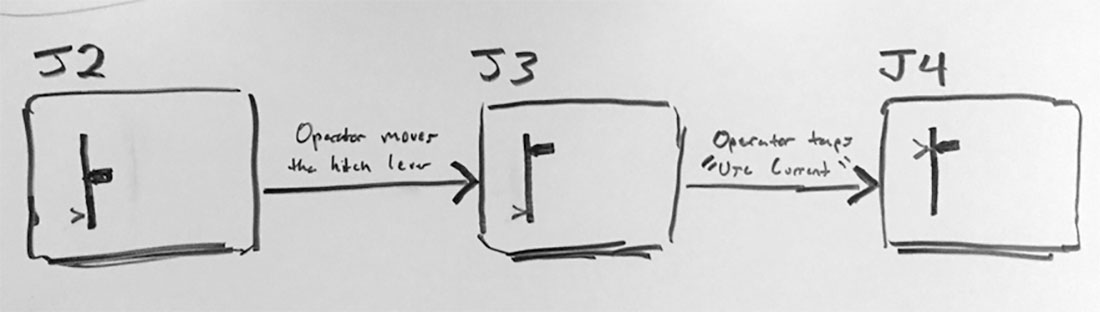 J2
J3
J4
Operator moves
the hitch lever
Operator taps
"Use Current"